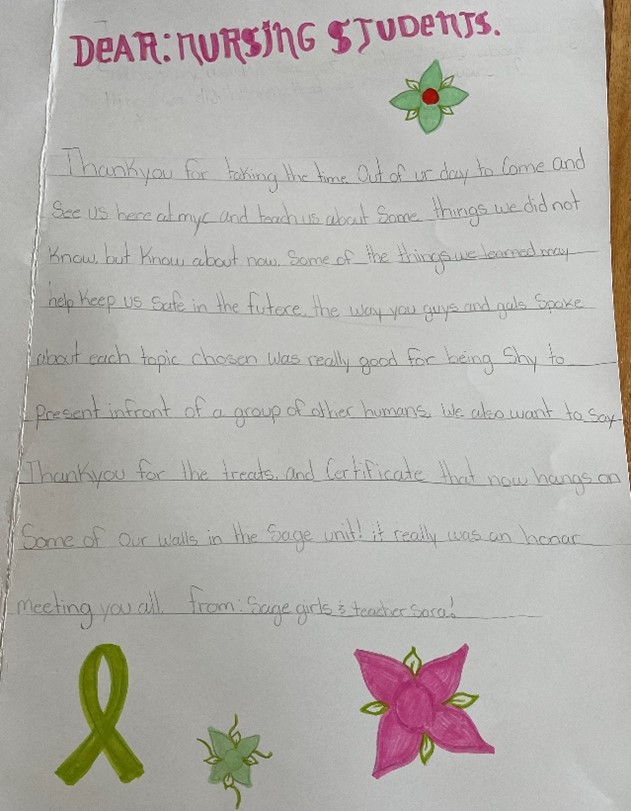 DEAR: NURSING STUDENTS.
Thankyou for taking the time out of ur day to Come and
See us here at myc and teach us about Some things we did not
Know, but Know about now. Some of the things we learned may
help Keep us Safe in the futere. the way you guys and gals Spoke
about each topic chosen was really good for being Shy to
Present infront of a group of other humans. We also want to Say
Thankyou for the treats. and Certificate that now hangs on
Some of Our walls in the Sage unit! it really was an honar
meeting you all. from: Sage girls & teacher Sara!